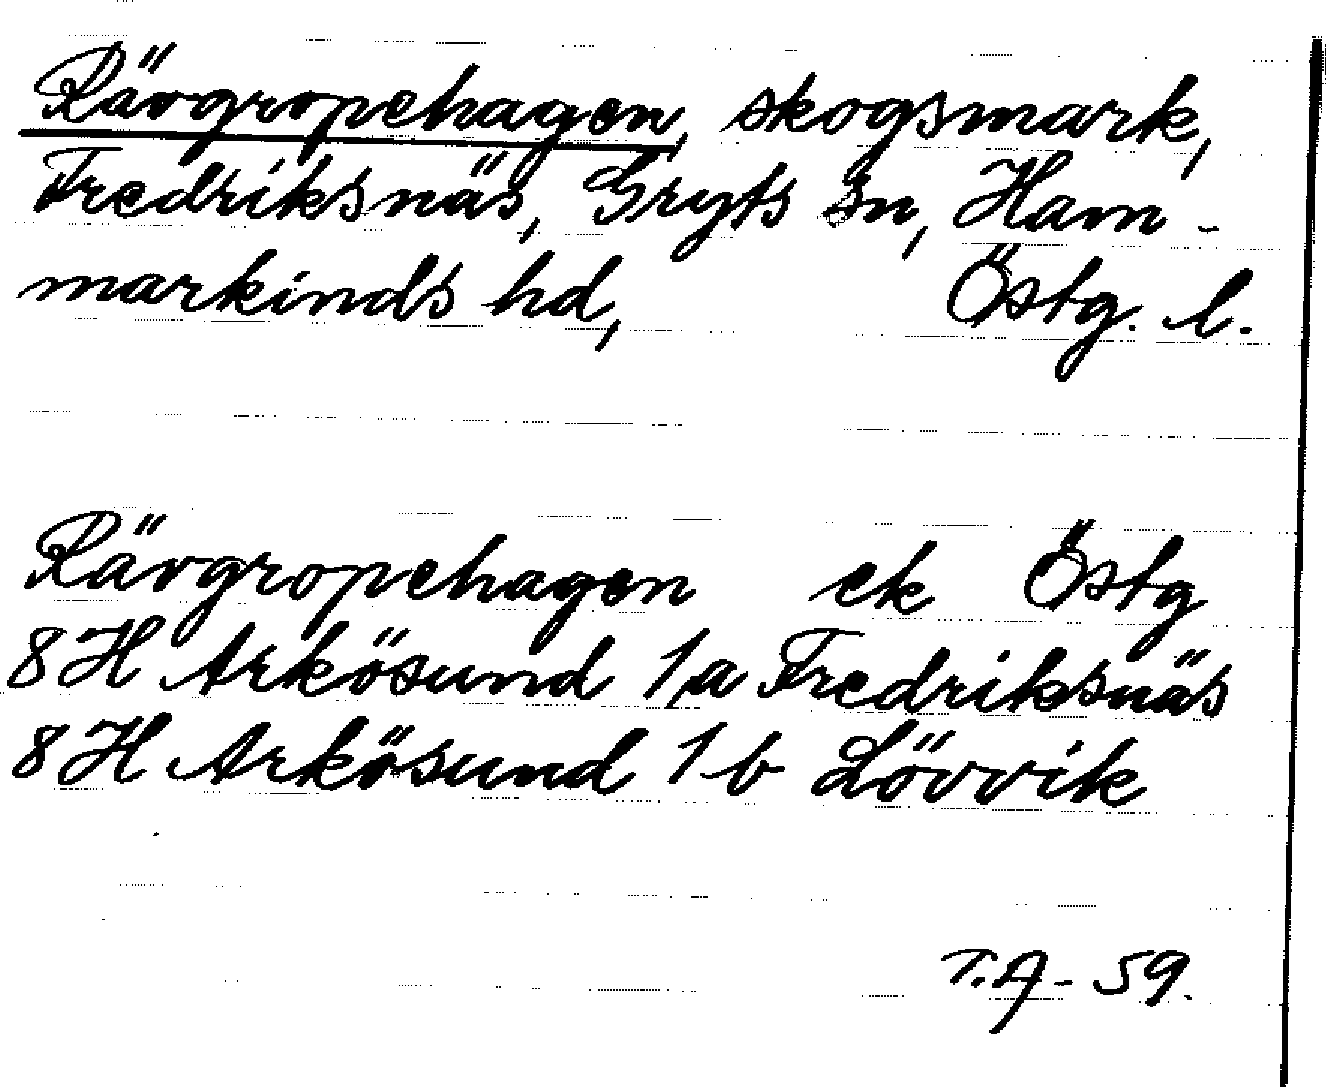 Rävgropehagen, skogsmark,
Fredriksnäs, Gryts sn, Ham-
markinds hd, Östg. l.
Rävgropehagen ek Östg
8H Arkösund 1a Fredriksnäs
8H Arkösund 1b Lövvik
T.A-59.